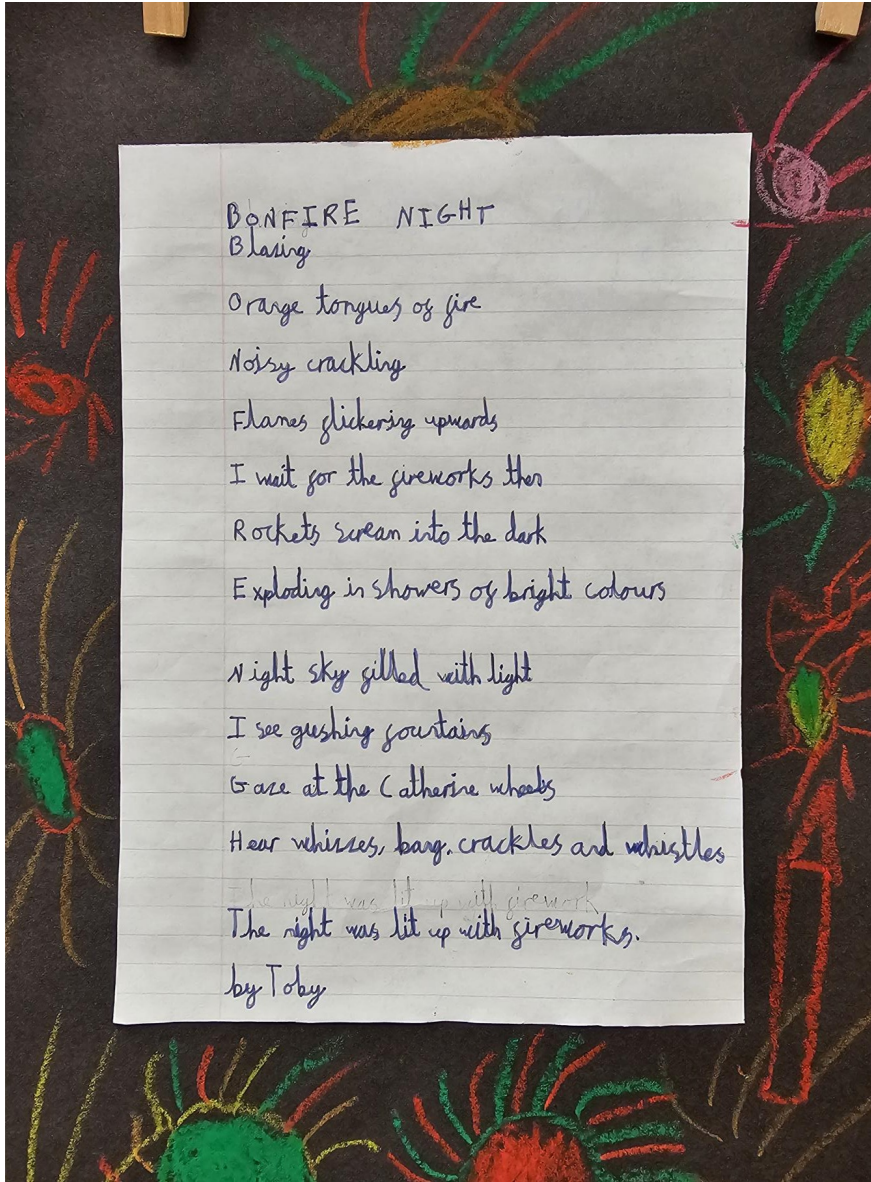 BONFIRE NIGHT
Blasing
Orange tongues of fire
Noisy crackling
Flames flickering upwards
I wait for the fireworks then
Rockets scream into the dark
Exploding in showers of bright colours
Night sky filled with light
I see gushing fountains
Gaze at the Catherine wheels
Hear whizzes, bang, crackles and whistles
The night was lit up with firework
The night was lit up with fireworks.
by Toby